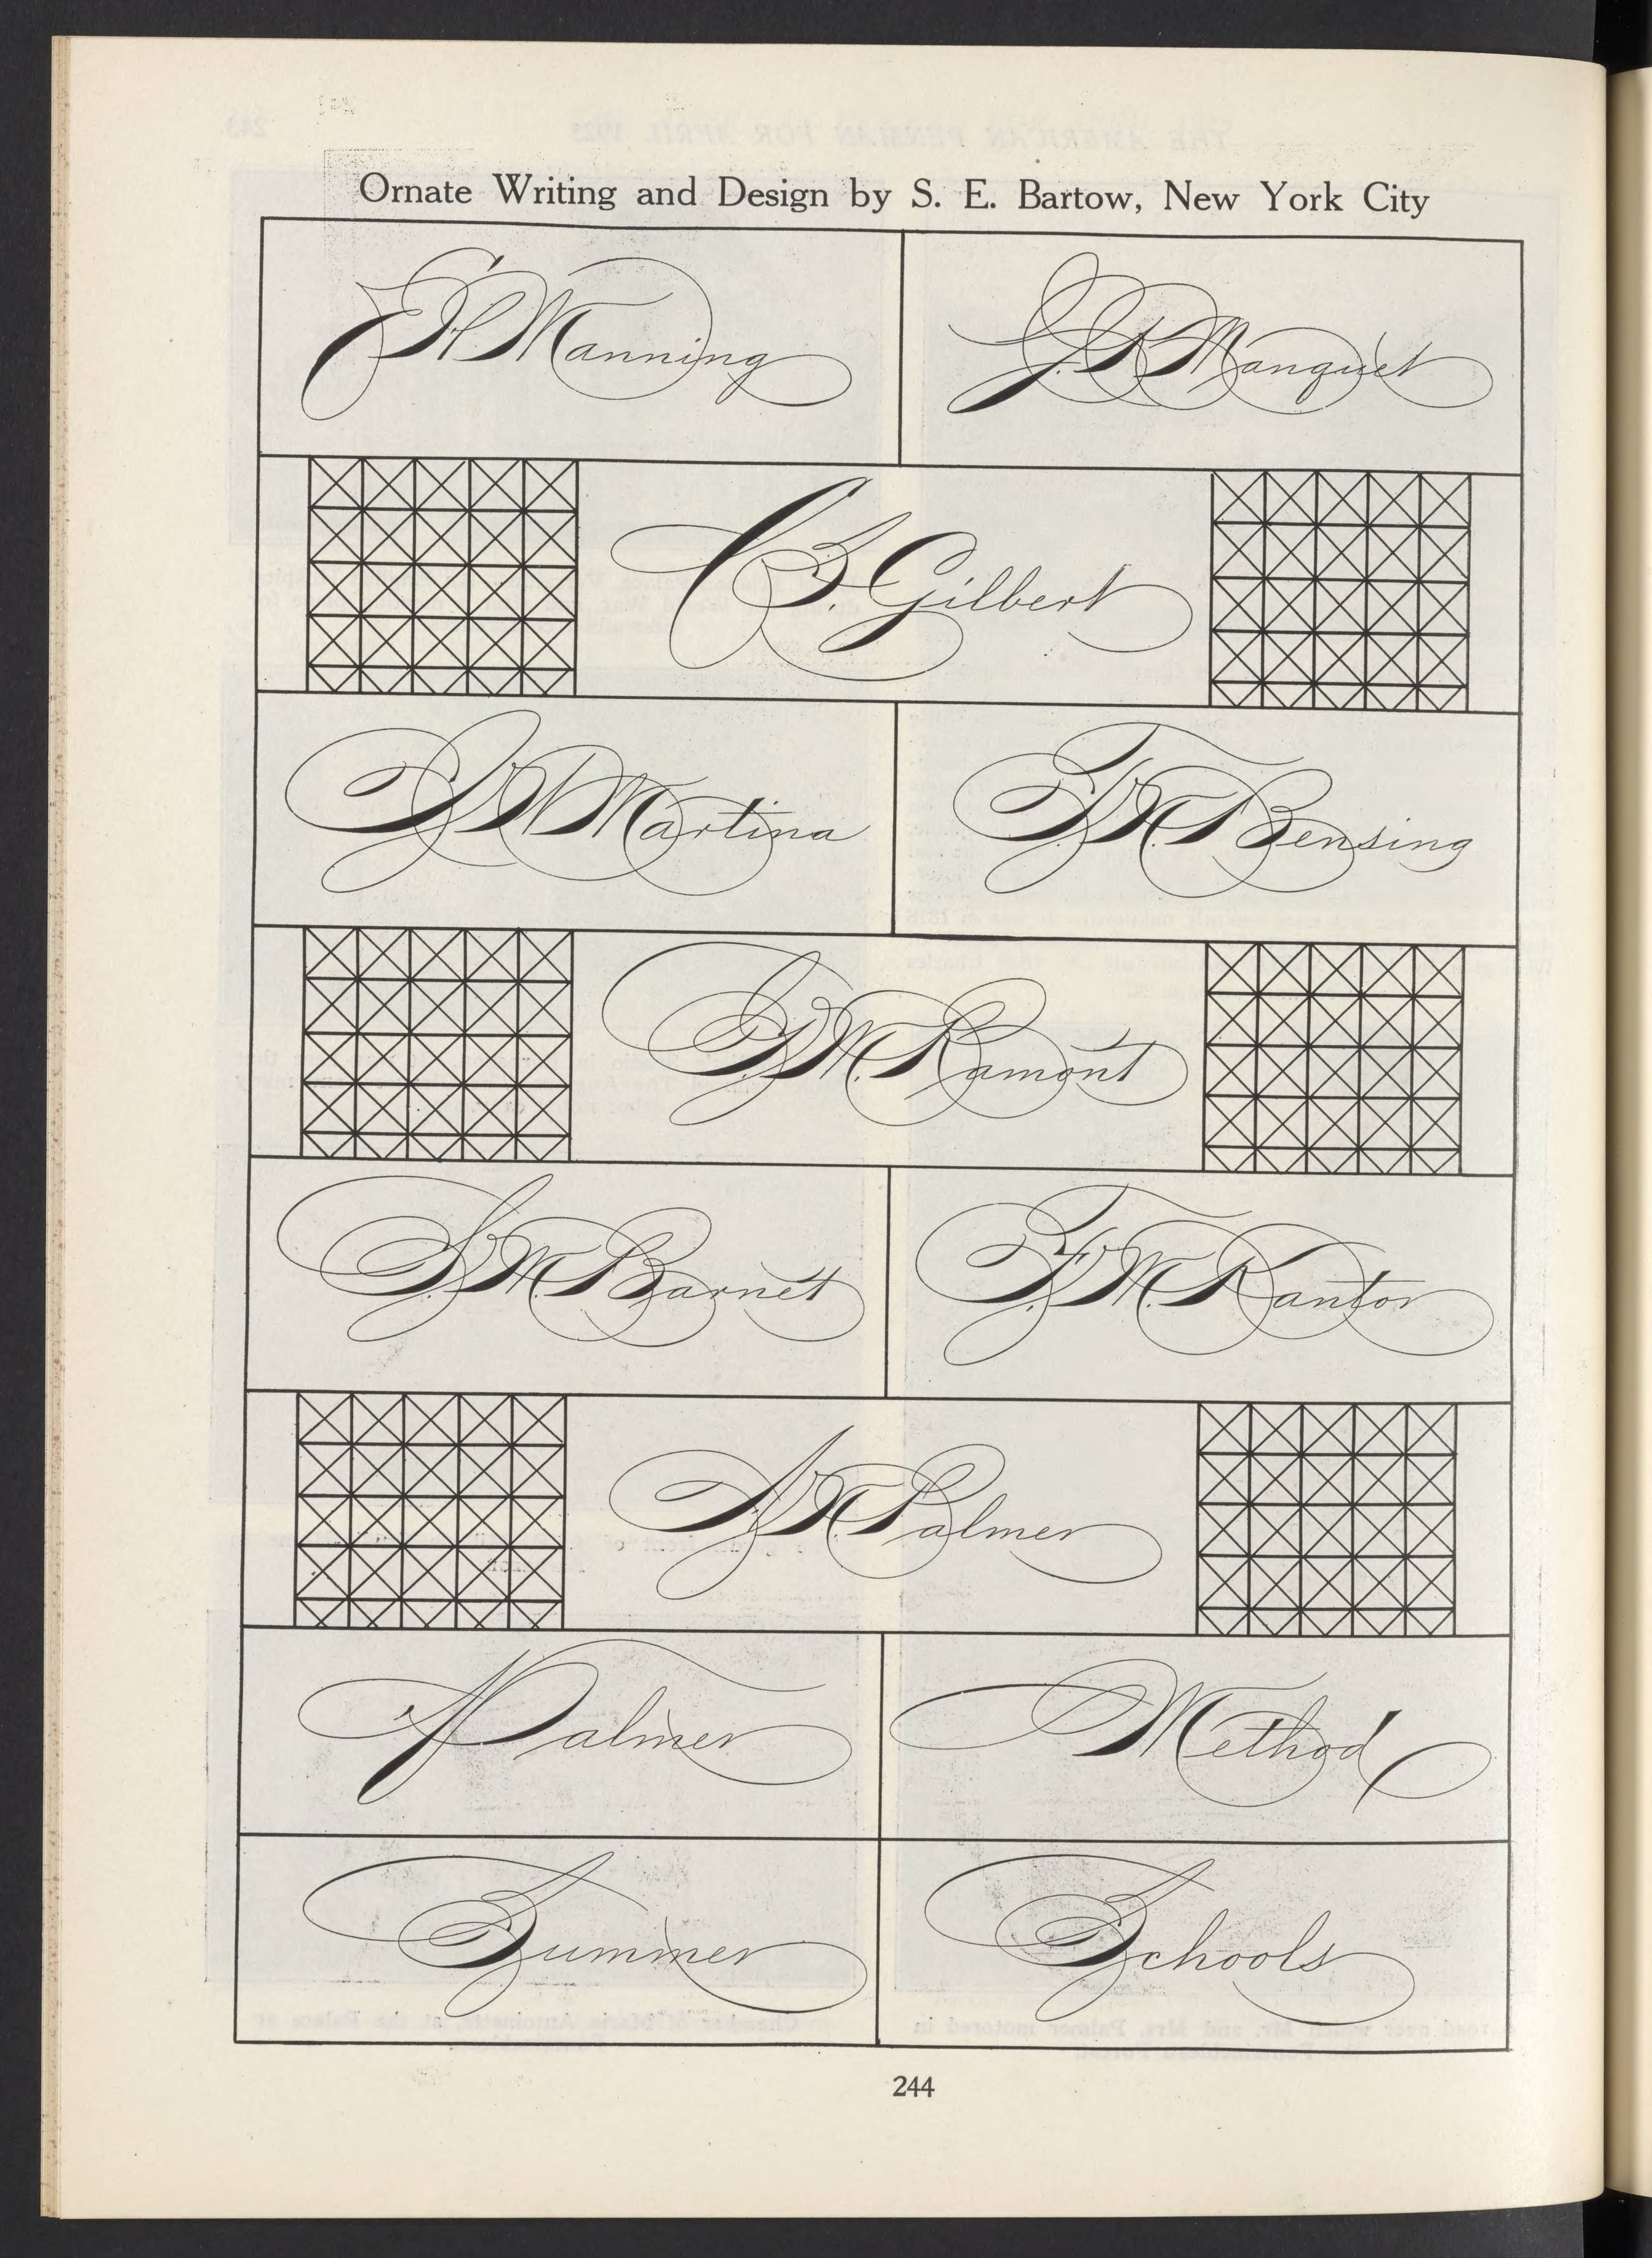 Ornate Writing and Design by S. E. Bartow, New York City
Manning
Manquet
C. B. Gilbert
Martina
Bensing
M. Ramont
S. M. Barnet
F. M. Kantor
Palmer
Palmer
Method
Summer
Schools
244